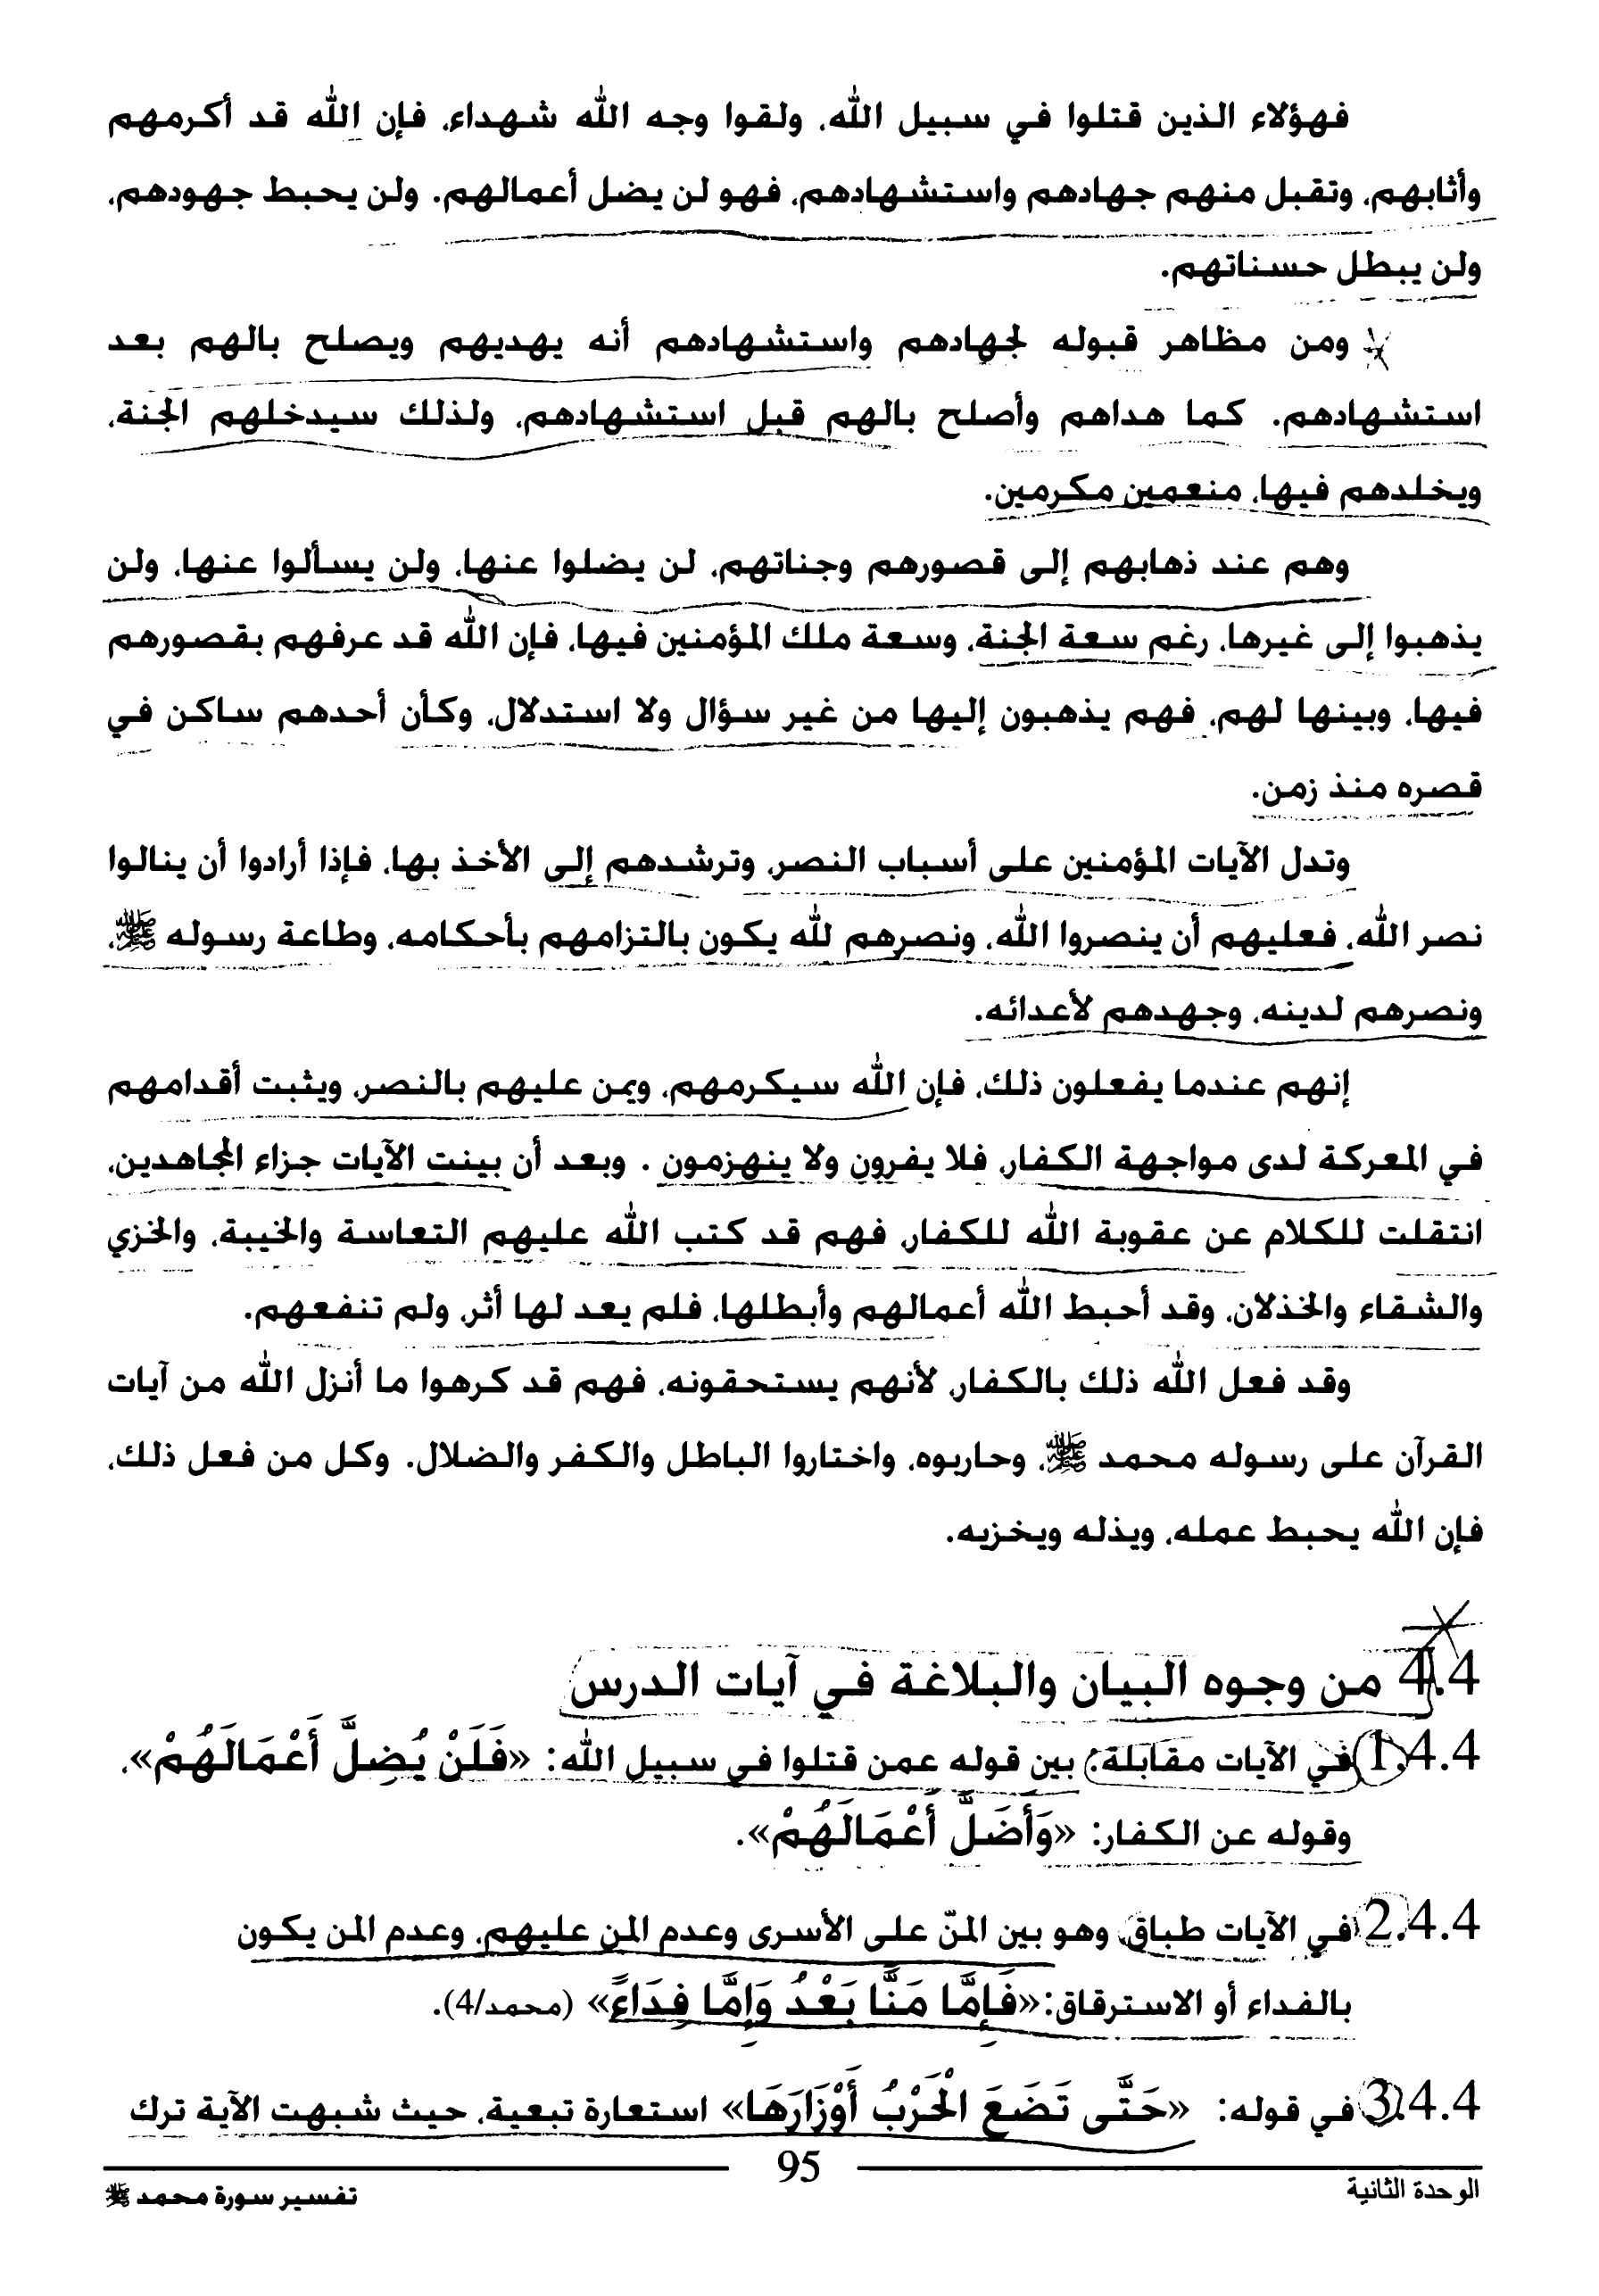 فهؤلاء الذين قتلوا في سبيل الله، ولقوا وجه الله شهداء، فإن الله قد أكرمهم
وأثابهم، وتقبل منهم جهادهم واستشهادهم، فهو لن يضل أعمالهم. ولن يحبط جهودهم،
ولن يبطل حسناتهم.
ومن مظاهر قبوله لجهادهم واستشهادهم أنه يهديهم ويصلح بالهم بعد
استشهادهم. كما هداهم وأصلح بالهم قبل استشهادهم، ولذلك سيدخلهم الجنة،
ويخلدهم فيها، منعمين مكرمين.
وهم عند ذهابهم إلى قصورهم وجناتهم، لن يضلوا عنها، ولن يسألوا عنها، ولن
يذهبوا إلى غيرها، رغم سعة الجنة، وسعة ملك المؤمنين فيها، فإن الله قد عرفهم بقصورهم
فيها، وبينها لهم، فهم يذهبون إليها من غير سؤال ولا استدلال، وكأن أحدهم ساكن في
قصره منذ زمن.
وتدل الآيات المؤمنين على أسباب النصر، وترشدهم إلى الأخذ بها، فإذا أرادوا أن ينالوا
نصر الله، فعليهم أن ينصروا الله، ونصرهم لله يكون بالتزامهم بأحكامه، وطاعة رسوله ﷺ،
ونصرهم لدينه، وجهدهم لأعدائه.
إنهم عندما يفعلون ذلك، فإن الله سيكرمهم، ويمن عليهم بالنصر، ويثبت أقدامهم
في المعركة لدى مواجهة الكفار، فلا يفرون ولا ينهزمون . وبعد أن بينت الآيات جزاء المجاهدين،
انتقلت للكلام عن عقوبة الله للكفار، فهم قد كتب الله عليهم التعاسة والخيبة، والخزي
والشقاء والخذلان، وقد أحبط الله أعمالهم وأبطلها، فلم يعد لها أثر، ولم تنفعهم.
وقد فعل الله ذلك بالكفار، لأنهم يستحقونه، فهم قد كرهوا ما أنزل الله من آيات
القرآن على رسوله محمد ﷺ، وحاربوه، واختاروا الباطل والكفر والضلال. وكل من فعل ذلك،
فإن الله يحبط عمله، ويذله ويخزيه.
4.4 من وجوه البيان والبلاغة في آيات الدرس
1.4.4 في الآيات مقابلة: بين قوله عمن قتلوا في سبيل الله: «فَلَنْ يُضِلَّ أَعْمَالَهُمْ»،
وقوله عن الكفار: «وَأَضَلَّ أَعْمَالَهُمْ».
2.4.4 في الآيات طباق، وهو بين المنّ على الأسرى وعدم المن عليهم، وعدم المن يكون
بالفداء أو الاسترقاق: «فَإِمَّا مَنًّا بَعْدُ وَإِمَّا فِدَاءً» (محمد/4).
3.4.4 في قوله: «حَتَّى تَضَعَ الْحَرْبُ أَوْزَارَهَا» استعارة تبعية، حيث شبهت الآية ترك
95
الوحدة الثانية
تفسير سورة محمد ﷺ